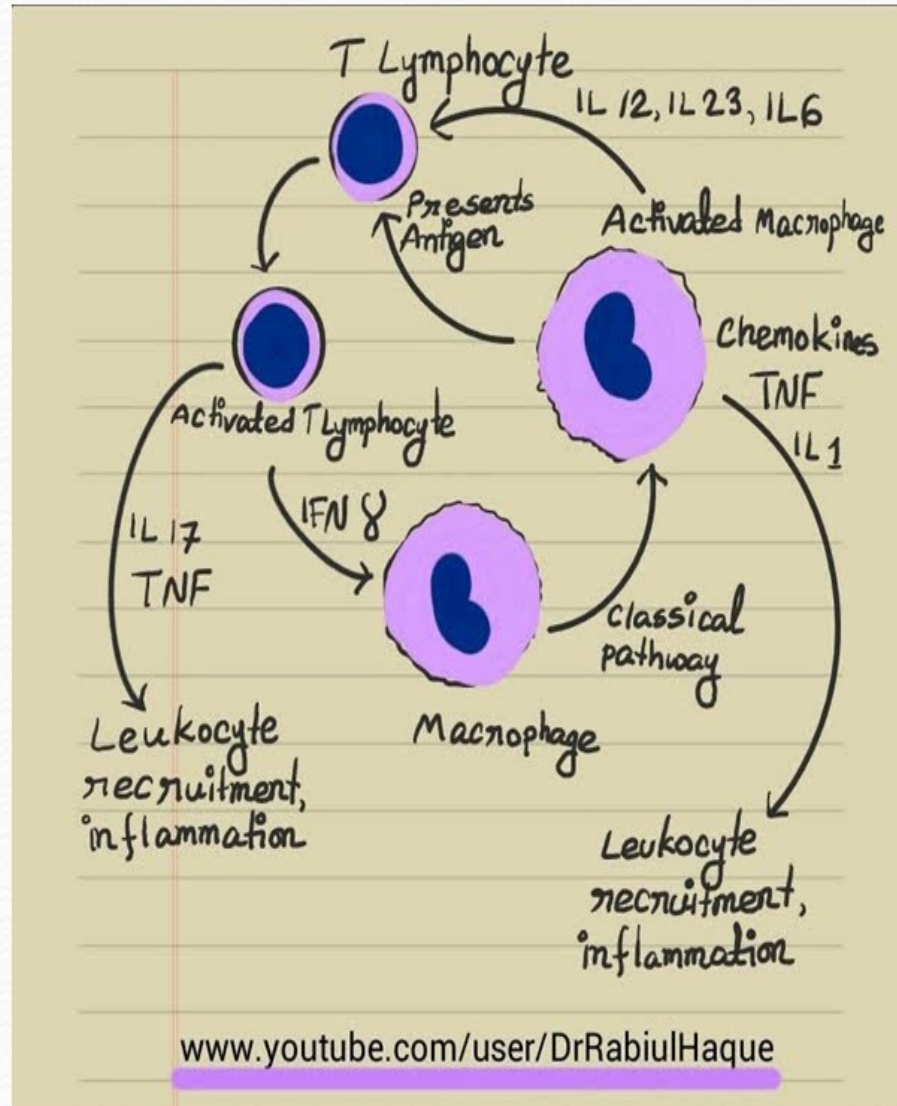 T Lymphocyte
IL 12, IL 23, IL6
Presents
Antigen
Activated Macrophage
Chemokines
TNF
IL 1
Activated T Lymphocyte
IFN γ
IL 17
TNF
Classical
pathway
Macrophage
Leukocyte
recruitment,
inflammation
Leukocyte
recruitment,
inflammation
www.youtube.com/user/DrRabiulHaque